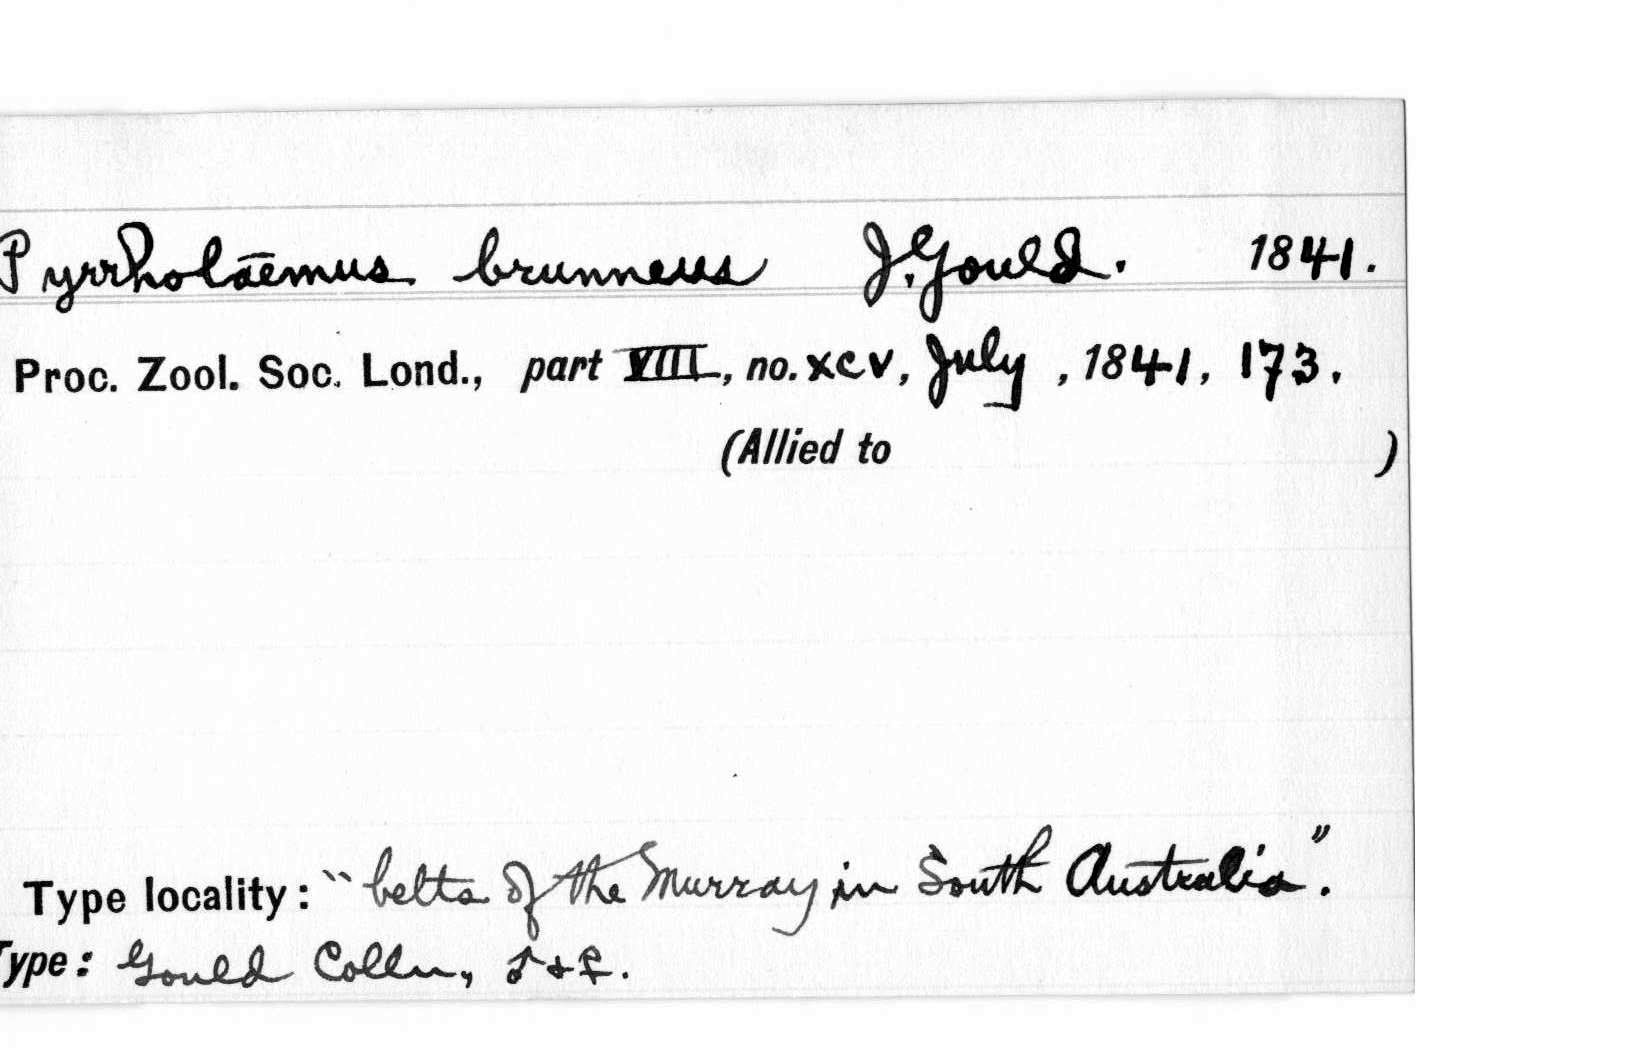 Pyrrholaemus brunneus J. Gould. 1841.
Proc. Zool. Soc. Lond., part VIII, no. xcv, July, 1841, 173.
(Allied to )
Type locality: "belts of the Murray in South Australia".
Type: Gould Colln, ♂ + ♀.